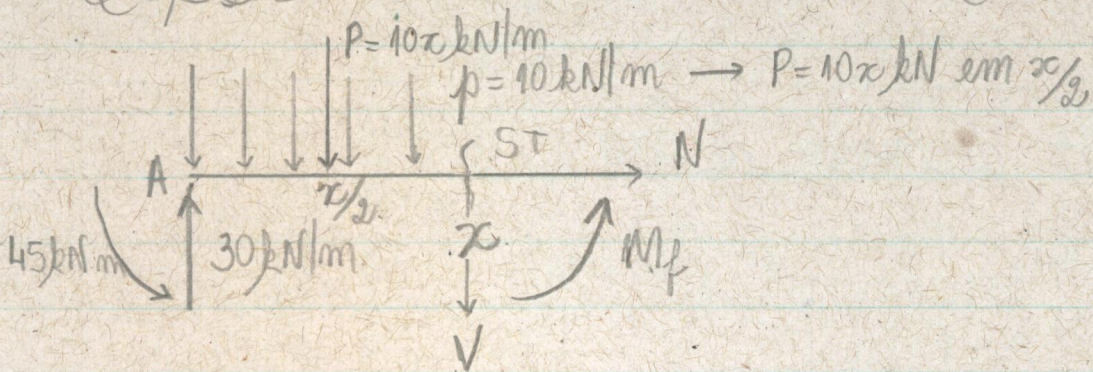 P=10x kN/m
p=10 kN/m → P=10x kN em x/2
ST
N
A
x/2
x
45kN m
30kN/m
Mf
V